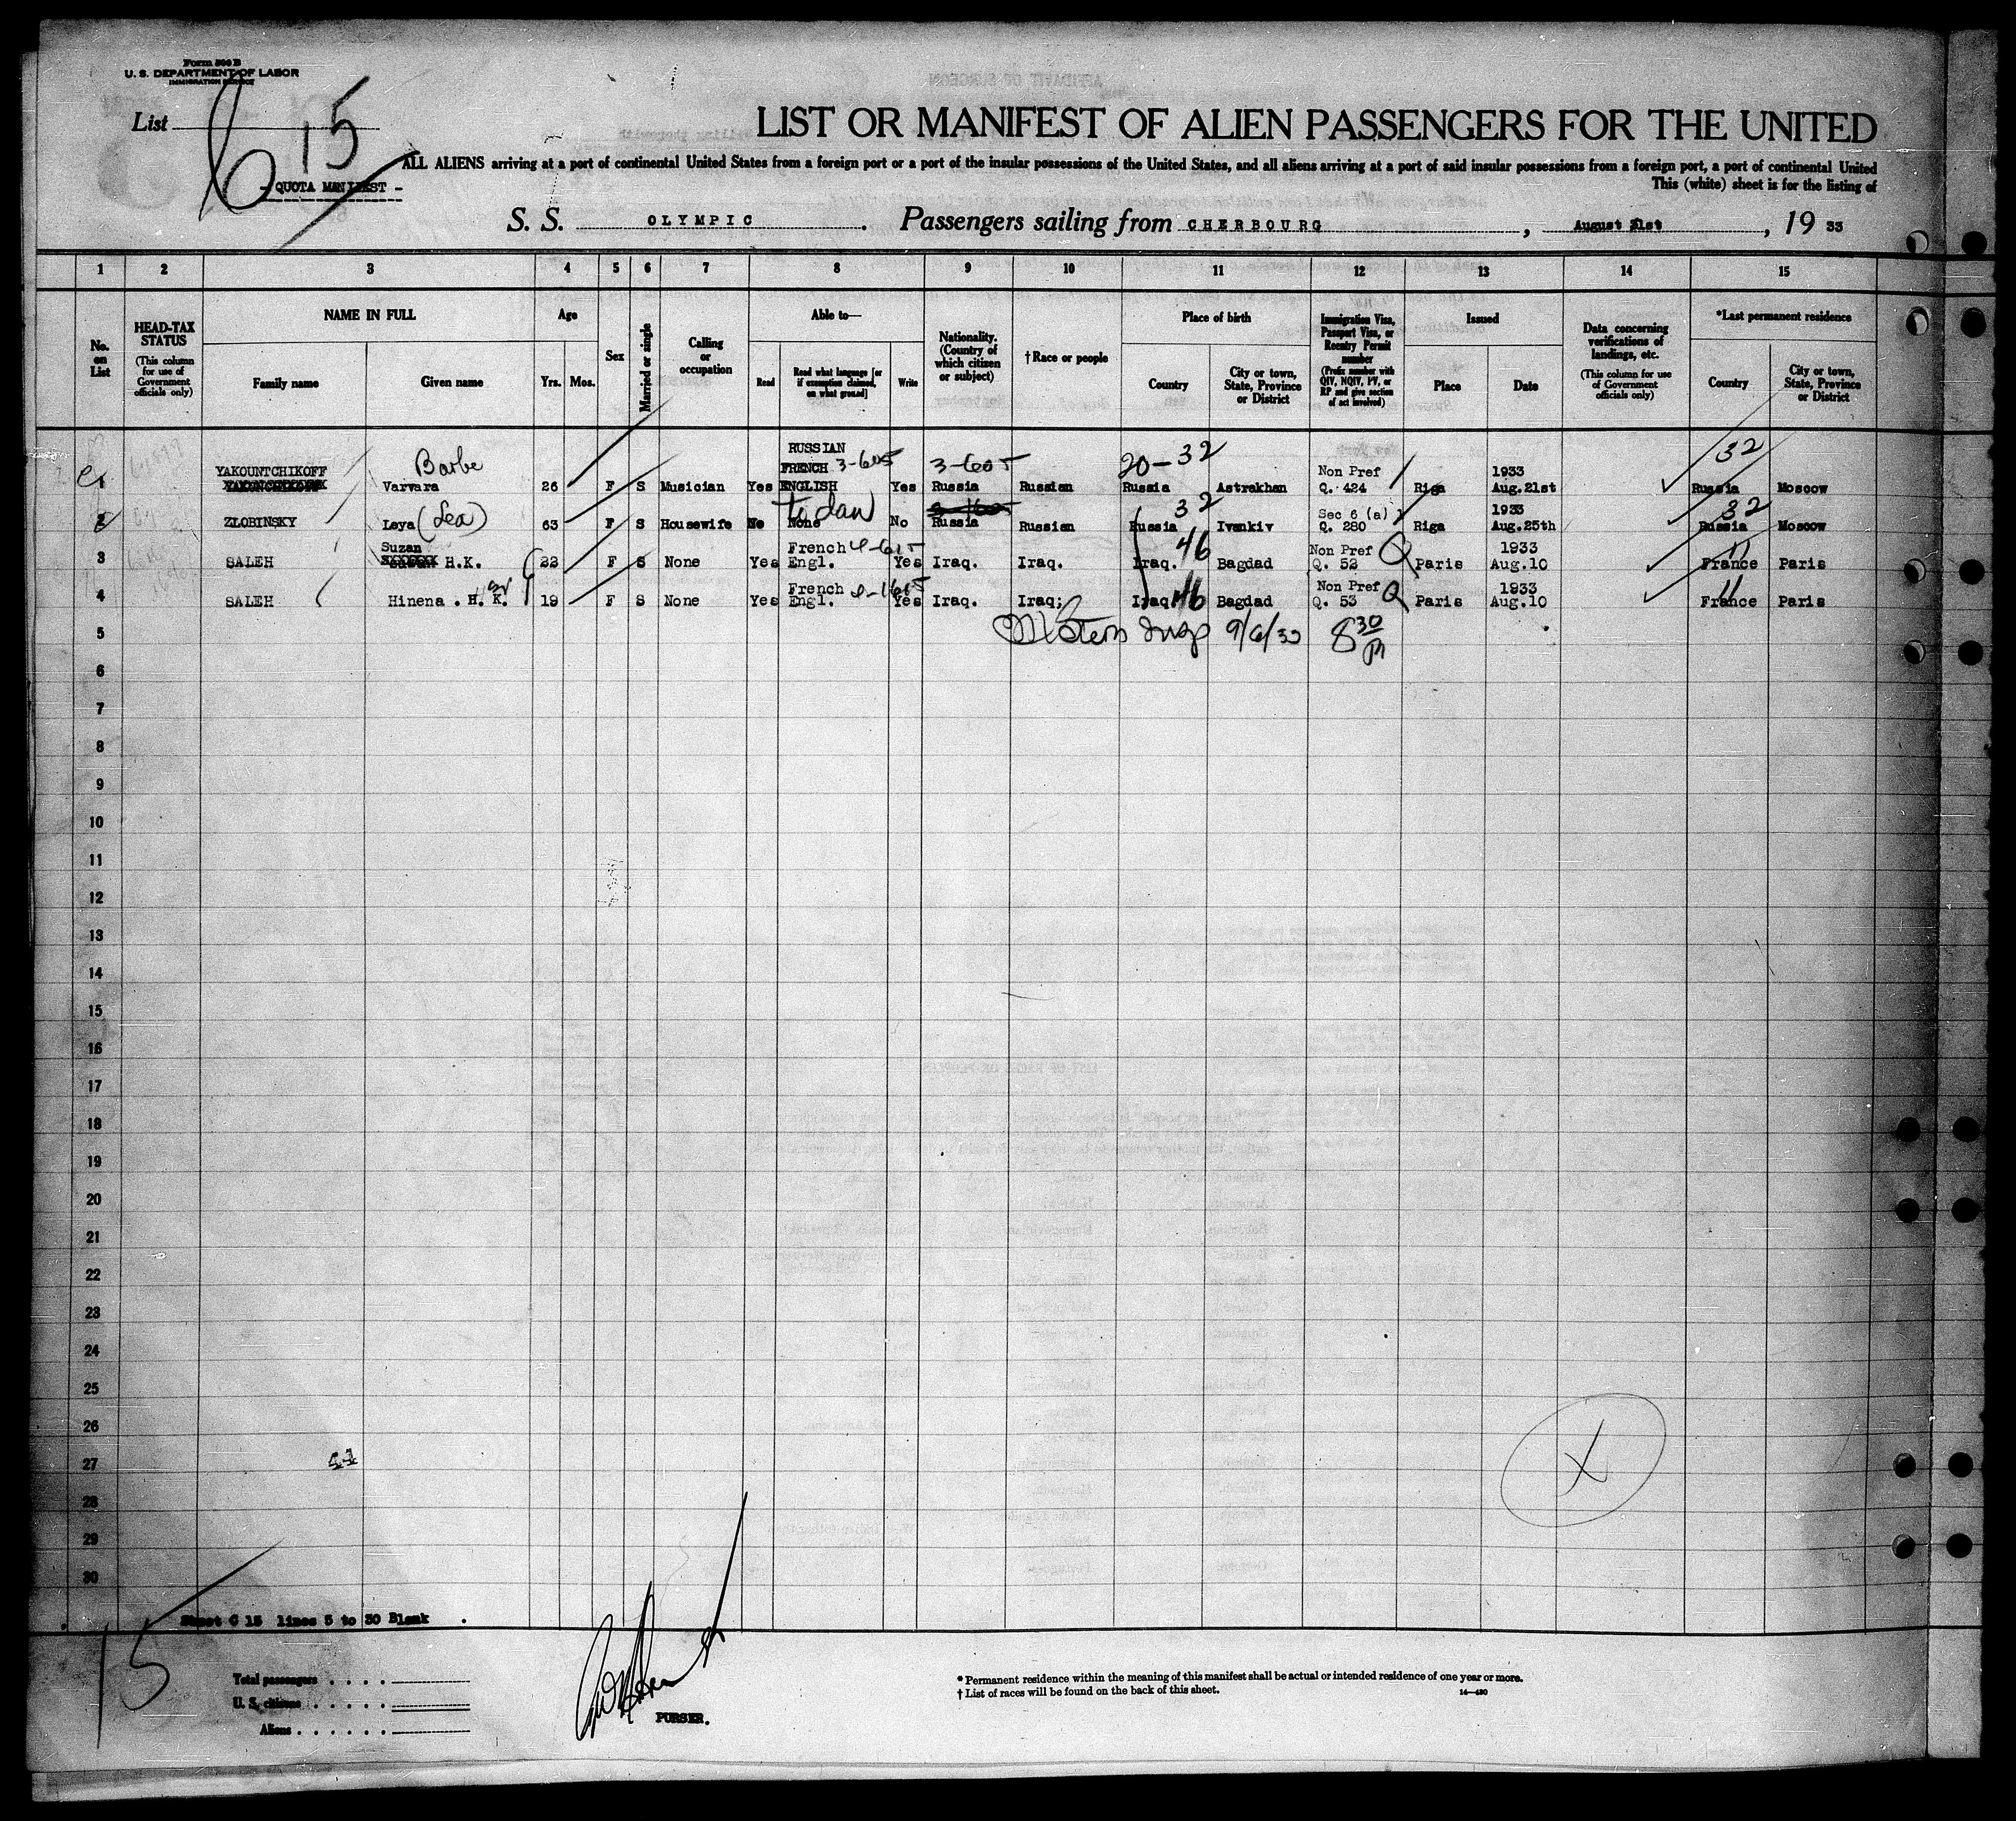 Form 500 B
U. S. DEPARTMENT OF LABOR
IMMIGRATION SERVICE
List 15
- QUOTA MANIFEST -
LIST OR MANIFEST OF ALIEN PASSENGERS FOR THE UNITED
ALL ALIENS arriving at a port of continental United States from a foreign port or a port of the insular possessions of the United States, and all aliens arriving at a port of said insular possessions from a foreign port, a port of continental United
This (white) sheet is for the listing of
S. S. OLYMPIC. Passengers sailing from CHERBOURG, August 31st, 19 33
1 2 3 4 5 6 7 8 9 10 11 12 13 14 15
No. on List
HEAD-TAX STATUS
(This column for use of Government officials only)
NAME IN FULL
Family name
Given name
Age
Yrs. Mos.
Sex
Married or single
Calling or occupation
Able to—
Read
Read what language [or if exemption claimed, on what ground]
Write
Nationality. (Country of which citizen or subject)
†Race or people
Place of birth
Country
City or town, State, Province or District
Immigration Visa, Passport Visa, or Reentry Permit number
(Prefix number with QIV, NQIV, PV, or RP and give section of act involved)
Issued
Place
Date
Data concerning verifications of landings, etc.
(This column for use of Government officials only)
*Last permanent residence
Country
City or town, State, Province or District
Barbe RUSSIAN 20-32 32
YAKOUNTCHIKOFF FRENCH 3-605 3-605 Non Pref 1933
1 Varvara 26 F S Musician Yes ENGLISH Yes Russia Russian Russia Astrakhan Q. 424 Riga Aug.21st Russia Moscow
32 Sec 6 (a) 1933 32
2 ZLOBINSKY Leya (Lea) 63 F S Housewife No None No Russia Russian Russia Ivankiv Q. 280 Riga Aug.25th Russia Moscow
Suzan French 4-615 46 Non Pref Q 1933 11
3 SALEH H.K. 22 F S None Yes Engl. Yes Iraq. Iraq. Iraq. Bagdad Q. 52 Paris Aug.10 France Paris
French 46 Non Pref Q 1933 11
4 SALEH Hinena . H. K. 19 F S None Yes Engl. Yes Iraq. Iraq; Iraq Bagdad Q. 53 Paris Aug.10 France Paris
5 Insp 9/6/33 8 30
6
7
8
9
10
11
12
13
14
15
16
17
18
19
20
21
22
23
24
25
26
27 44
28
29
30
Sheet C 15 lines 5 to 30 Blank .
15
Total passengers . . . .
U. S. citizens . . . . . .
Aliens . . . . . .
PURSER.
* Permanent residence within the meaning of this manifest shall be actual or intended residence of one year or more.
† List of races will be found on the back of this sheet.
14—430